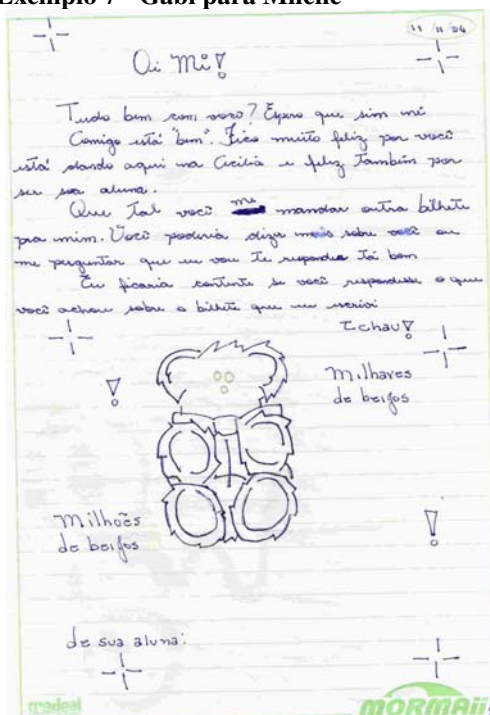 Exemplo 7 – Gabi para Milene
11/11/04
Oi Mi!
Tudo bem com você? Espero que sim né
Comigo está "bem". Fico muito feliz por você
está dando aqui na Cecília e feliz também por
ser sua aluna.
Que tal você me mandar outra bilhete
pra mim. Você poderia dizer mais sobre você ou
me perguntar que eu vou te responder tá bom
Eu ficaria contente se você respondesse o que
você achou sobre o bilhete que eu escrevi
Tchau!
Milhares
de beijos
!
Milhões
de beijos
!
de sua aluna:
credeal
MORMAII